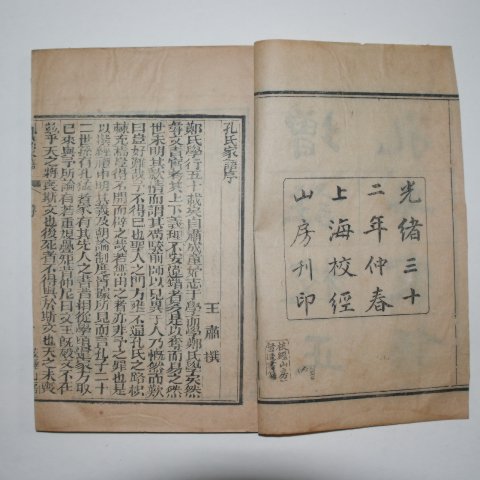 光緒三十
二年仲春
上海校經
山房刊印
校經山房
孔氏家語序
王肅撰
鄭氏學行五十載矣自肅成童始志于學而學鄭氏學矣然
尋文責實考其上下義理不安違錯者多是以奪而易之然
世未明其款情而謂其苟駮前師以見異于人乃慨然而歎
曰豈好難哉予不得已也聖人之門方壅不通孔氏之路枳
棘充焉豈得不開而辟之哉若無由之者亦非予之罪也是
以撰經禮申明其義及朝論制度皆據所見而言孔子二十
二世孫有孔猛者家有其先人之書昔相從學頃還家方取
已來與予所論有若重規疊矩昔仲尼曰文王既歿文不在
茲乎天之將喪斯文也後死者不得與於斯文也天之未喪